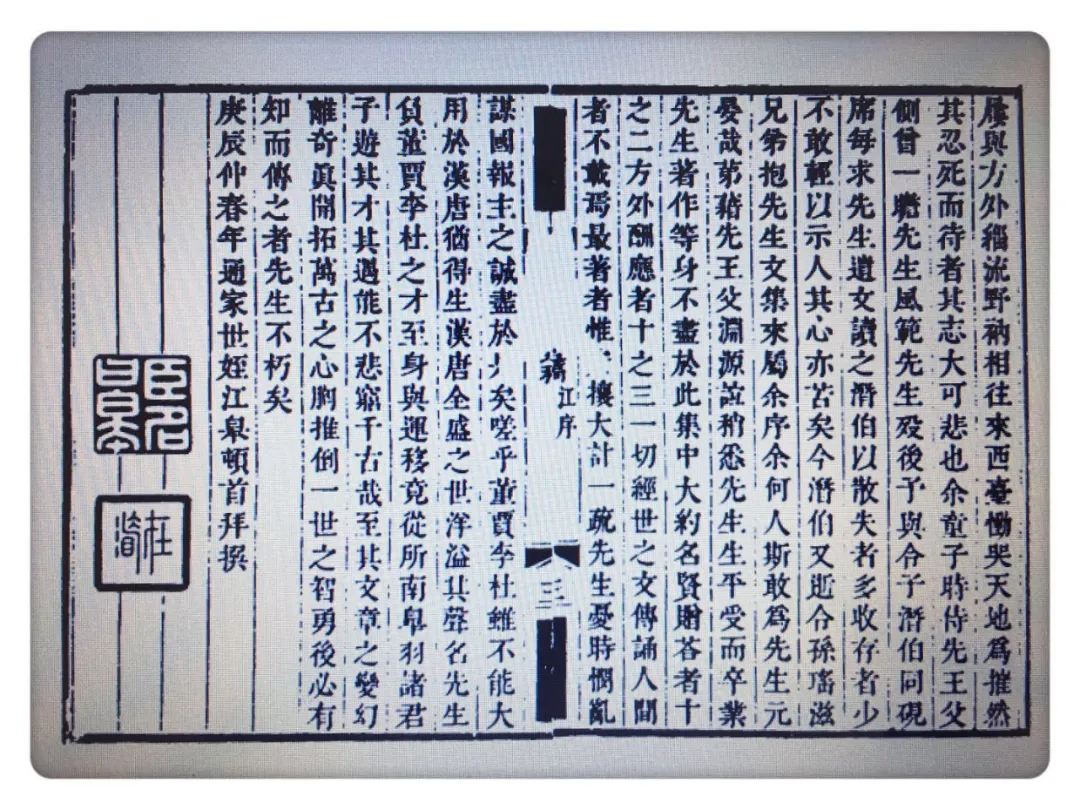 屢與方外緇流野衲相往來西臺慟哭天地爲摧然
其忍死而待者其志大可悲也余童子時侍先王父
側曾一瞻先生風範先生歿後予與令子潛伯同硯
席每求先生遺文讀之潛伯以散失者多收存者少
不敢輕以示人其心亦苦矣今潛伯又逝令孫瑤滋
兄弟抱先生文集來屬余序余何人斯敢爲先生元
晏哉第藉先王父淵源誼稍悉先生生平受而卒業
先生著作等身不盡於此集中大約名賢贈答者十
之二方外酬應者十之三一切經世之文傳誦人間
者不載焉最著者惟攘大計一疏先生憂時憫亂
江序
三
謀國報主之誠盡於矣嗟乎董賈李杜雖不能大
用於漢唐猶得生漢唐全盛之世洋溢其聲名先生
負董賈李杜之才至身與運移竟從所南皐羽諸君
子遊其才其遇能不悲窮千古哉至其文章之變幻
離奇眞開拓萬古之心胸推倒一世之智勇後必有
知而傳之者先生不朽矣
庚辰仲春年通家世姪江皐頓首拜撰
臣名
在湄